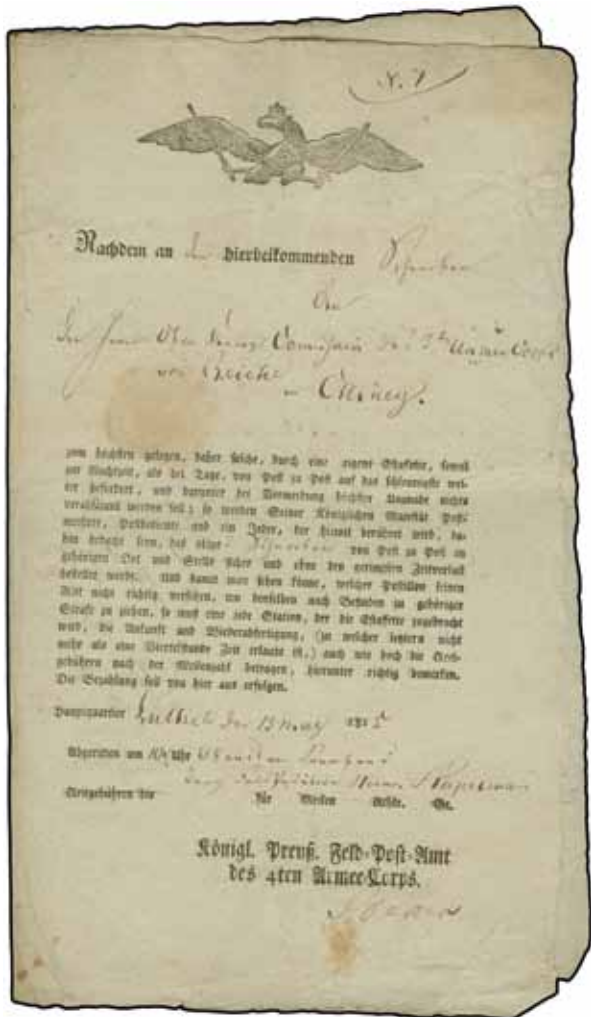 Nachdem an hierbeikommenden Schreiben
An
den Herrn Ober Commissair des 3ten Armee Corps
von Reiche Ciney.
zum höchsten gelegen, daher solche, durch eine eigene Estaffette, sowol
zur Nachtzeit, als bei Tage, von Post zu Post auf das schleunigste wei-
ter befördert, und darunter bei Vermeidung höchster Ungnade nichts
verabsäumt werden soll; so werden Seiner Königlichen Majestät Post-
meister, Postbediente und ein Jeder, der hiemit berührt wird, da-
hin bedacht seyn, das obige Schreiben von Post zu Post an
gehörigen Ort und Stelle sicher und ohne den geringsten Zeitverlust
bestellet werde. Und damit man sehen könne, welcher Postillon seinen
Ritt nicht richtig verführt, um denselben nach Befinden zu gehöriger
Strafe zu ziehen, so muß eine jede Station, der die Estaffette zugebracht
wird, die Ankunft und Wiederabfertigung, (zu welcher letztern nicht
mehr als eine Viertelstunde Zeit erlaubt ist,) auch wie hoch die
gebühren nach der Meilenzahl betragen, hierunter richtig bemerken.
Die Bezahlung soll von hier aus erfolgen.
Hauptquartier den 13 May 1815
Abgeritten um Uhr
für Meilen Rthlr. Gr.
Königl. Preuß. Feld-Post-Amt
des 4ten Armee-Corps.